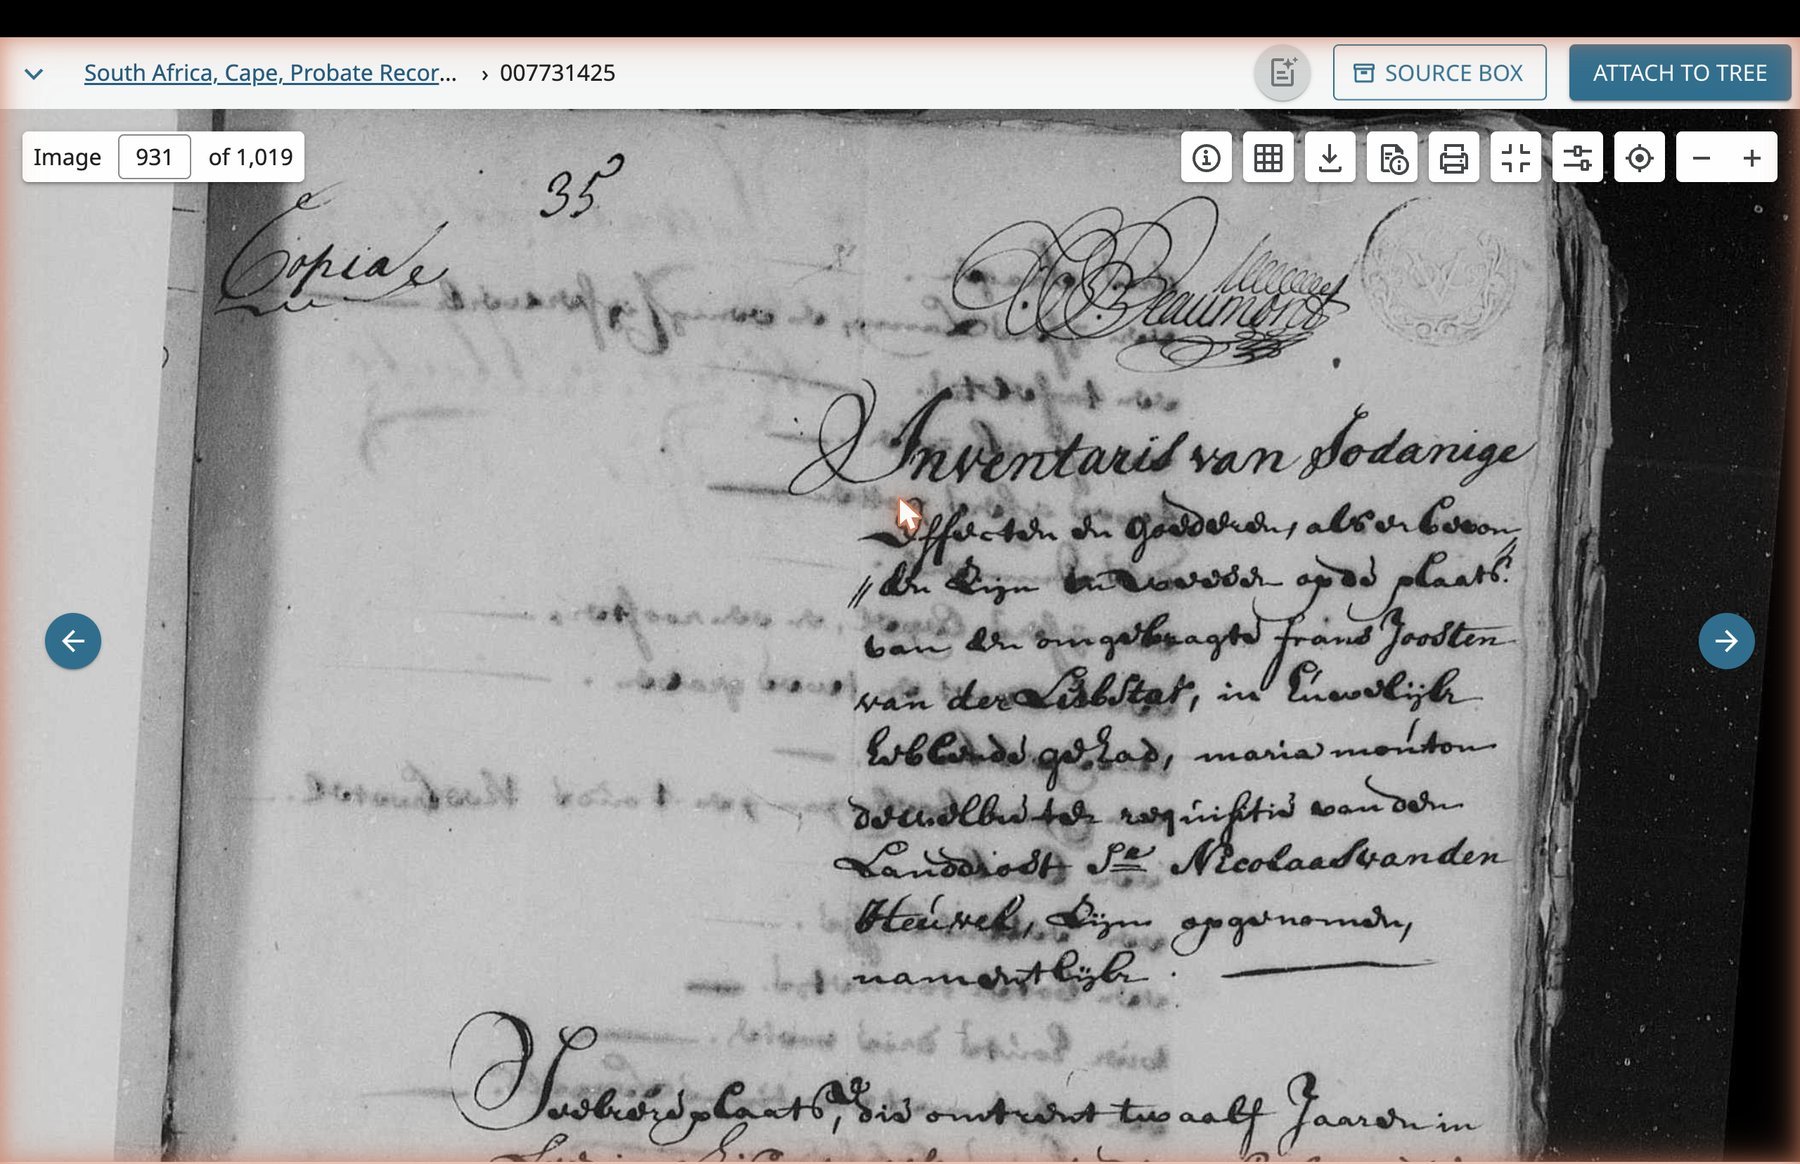 South Africa, Cape, Probate Recor... › 007731425
SOURCE BOX
ATTACH TO TREE
Image 931 of 1,019
35
Copia
Beaumont
Inventaris van Sodanige
Effecten en goederen, als er bevon
// den Zijn en werden op de plaats
van den omgebragte frans Joosten
van der Libstat, in huwelijk
hebbende gehad, maria mouton
dewelke ter requisitie van den
Landdrost Sr Nicolaas van den
Heuvel, Zijn opgenomen,
namentlijk
plaats, die omtrent twaalf Jaaren in